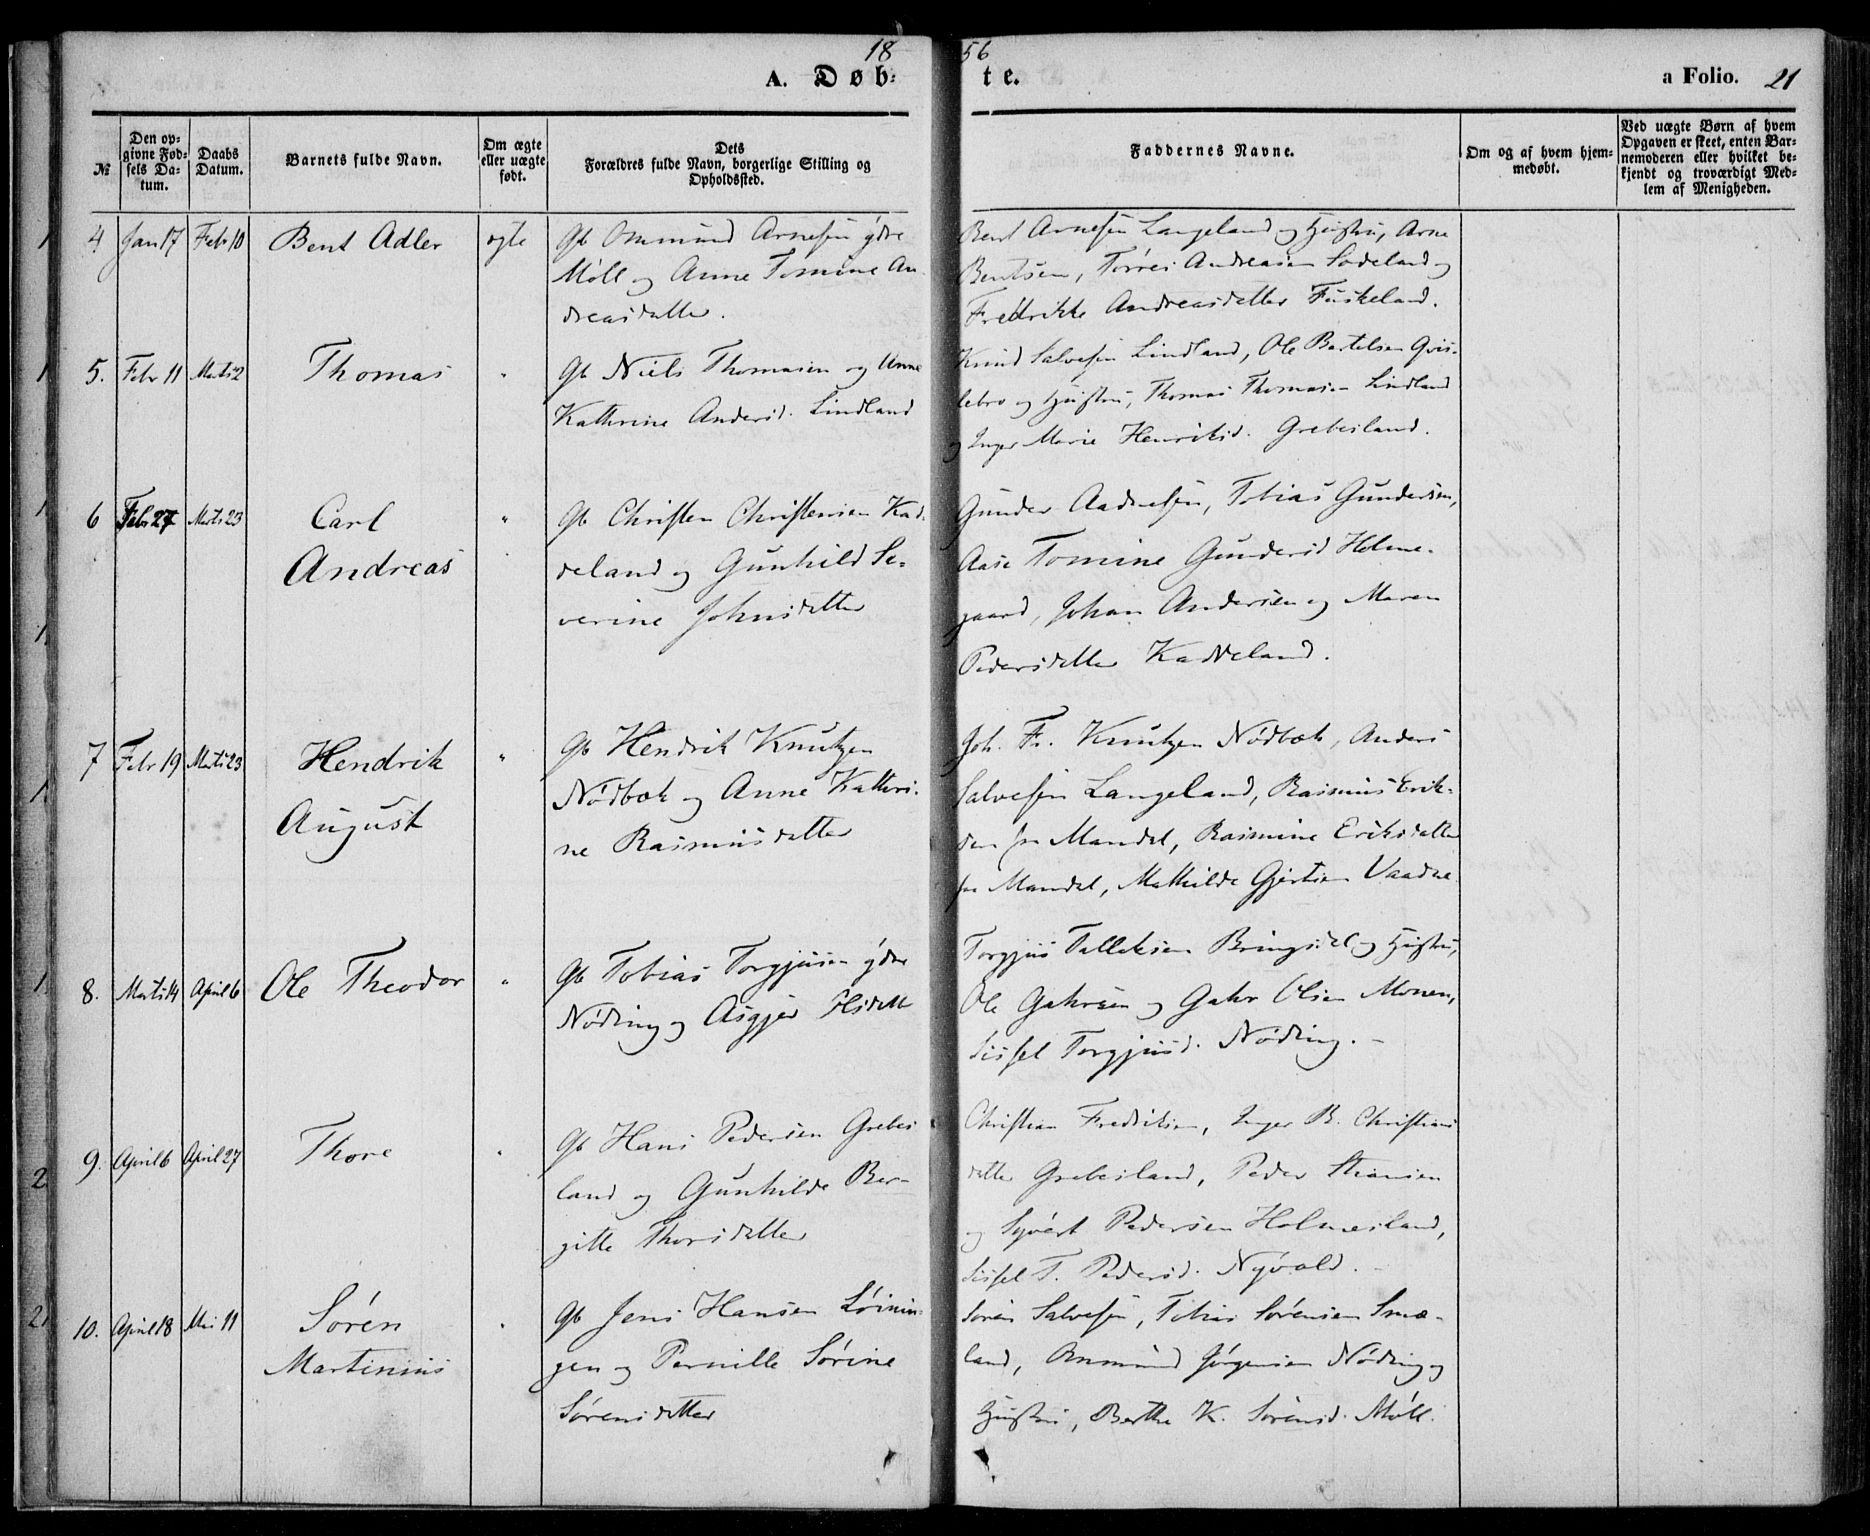 1856
A. Døbte.
a Folio. 21
№
Den opgivne Fødsels Datum.
Daabs Datum.
Barnets fulde Navn.
Om ægte eller uægte født.
Dets Forældres fulde Navn, borgerlige Stilling og Opholdssted.
Faddernes Navne.
Om og af hvem hjemmedøbt.
Ved uægte Børn af hvem Opgaven er skeet, enten Barnemoderen eller hvilket bekjendt og troværdigt Medlem af Menigheden.
4 Jan 17 Febr 10 Bent Adler ægte
Gb Ommund Arnesen ydre
Møll og Anne Tomine An-
dreasdatter.
Bent Arnesen Langeland og Hustru, Arne
Bentsen, Tørres Andreasen Sodeland og
Fredrikke Andreasdatter Fuskeland.
5. Febr 11 Marts 2 Thomas "
Gb Niels Thomasen og Anne
Kathrine Andersd. Lindland
Knud Salvesen Lindland, Ole Bertelsen Qvis-
lebro og Hustru, Thomas Thomasen Lindland
og Inger Marie Henriksd. Grebesland.
6 Febr 27 Marts 23 Carl
Andreas "
Gb Christen Christensen Kad-
deland og Gunhild Se-
verine Johnsdatter
Gunder Aadnesen, Tobias Gundersen,
Aase Tomine Gundersd Holme-
gaard, Johan Andersen og Maren
Pedersdatter Kaddeland.
7 Febr 19 Marts 23 Hendrik
August "
Gb Hendrik Knutzen
Nødbæk og Anne Kathri-
ne Rasmusdatter
Joh. Fr. Knutzen Nødbæk, Anders
Salvesen Langeland, Rasmus Erik-
sen fra Mandal, Rasmine Eriksdatter
fra Mandal, Mathilde Gjertsen Vaadne
8. Marts 14 April 6 Ole Theodor "
Gb Tobias Torgjusen ydre
Nøding og Asgjer Olsdatt
Torgjus Tallaksen Bringsdal og Hustru,
Ole Gahrsen og Gahr Olsen Monen,
Sissel Torgjusd. Nøding. -
9. April 6 April 27 Thore "
Gb Hans Pedersen Grebes
land og Gunhilde Ber-
gitte Thorsdatter
Christian Fredriksen, Inger B. Christians
datter Grebesland, Peder
og Syvert Pedersen Holmesland,
Sissel T. Pedersd. Nyvold. -
10. April 18 Mai 11 Søren
Martinius "
Gb Jens Hansen Løinin-
gen og Pernille Sørine
Sørensdatter
Søren Salvesen, Tobias Sørensen Smæ-
land, Ommund Jørgensen Nøding og
Hustru, Berthe K. Sørensd. Møll.